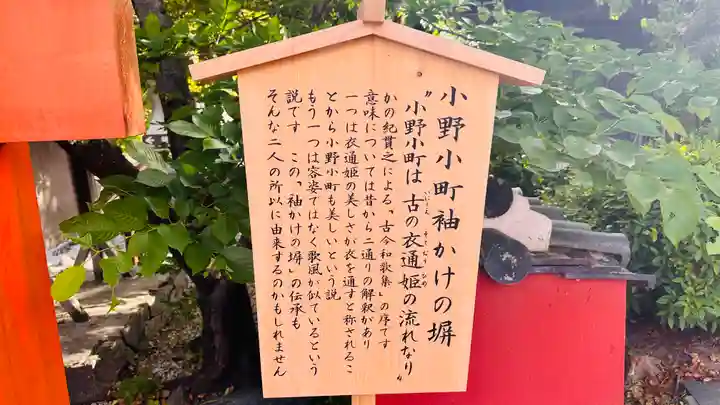 小野小町袖かけの塀
"小野小町は 古の衣通姫の流れなり"
いにしえ そとおりひめ
かの紀貫之による、「古今和歌集」の序です
意味については昔から二通りの解釈があり
一つは衣通姫の美しさが衣を通すと称されるこ
とから小野小町も美しいという説
もう一つは容姿ではなく歌風が似ているという
説です この、「袖かけの塀」の伝承も
そんな二人の所以に由来するのかもしれません